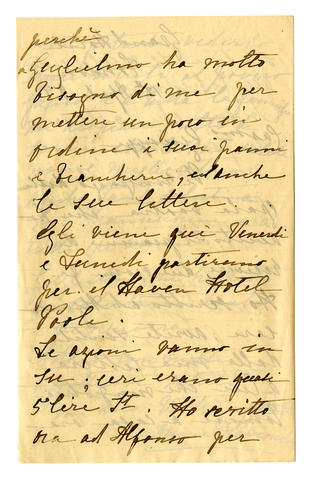 perchè
a Guglielmo ha molto
bisogno di me per
mettere un poco in
ordine i suoi panni
e biancheria, ed anche
le sue lettere.
Egli viene qui Venerdi
e Lunedi partiremo
per il Haven Hotel
Poole.
Le azioni vanno in
su; ieri erano quasi
5 lire St. Ho scritto
ora ad Alfonso per